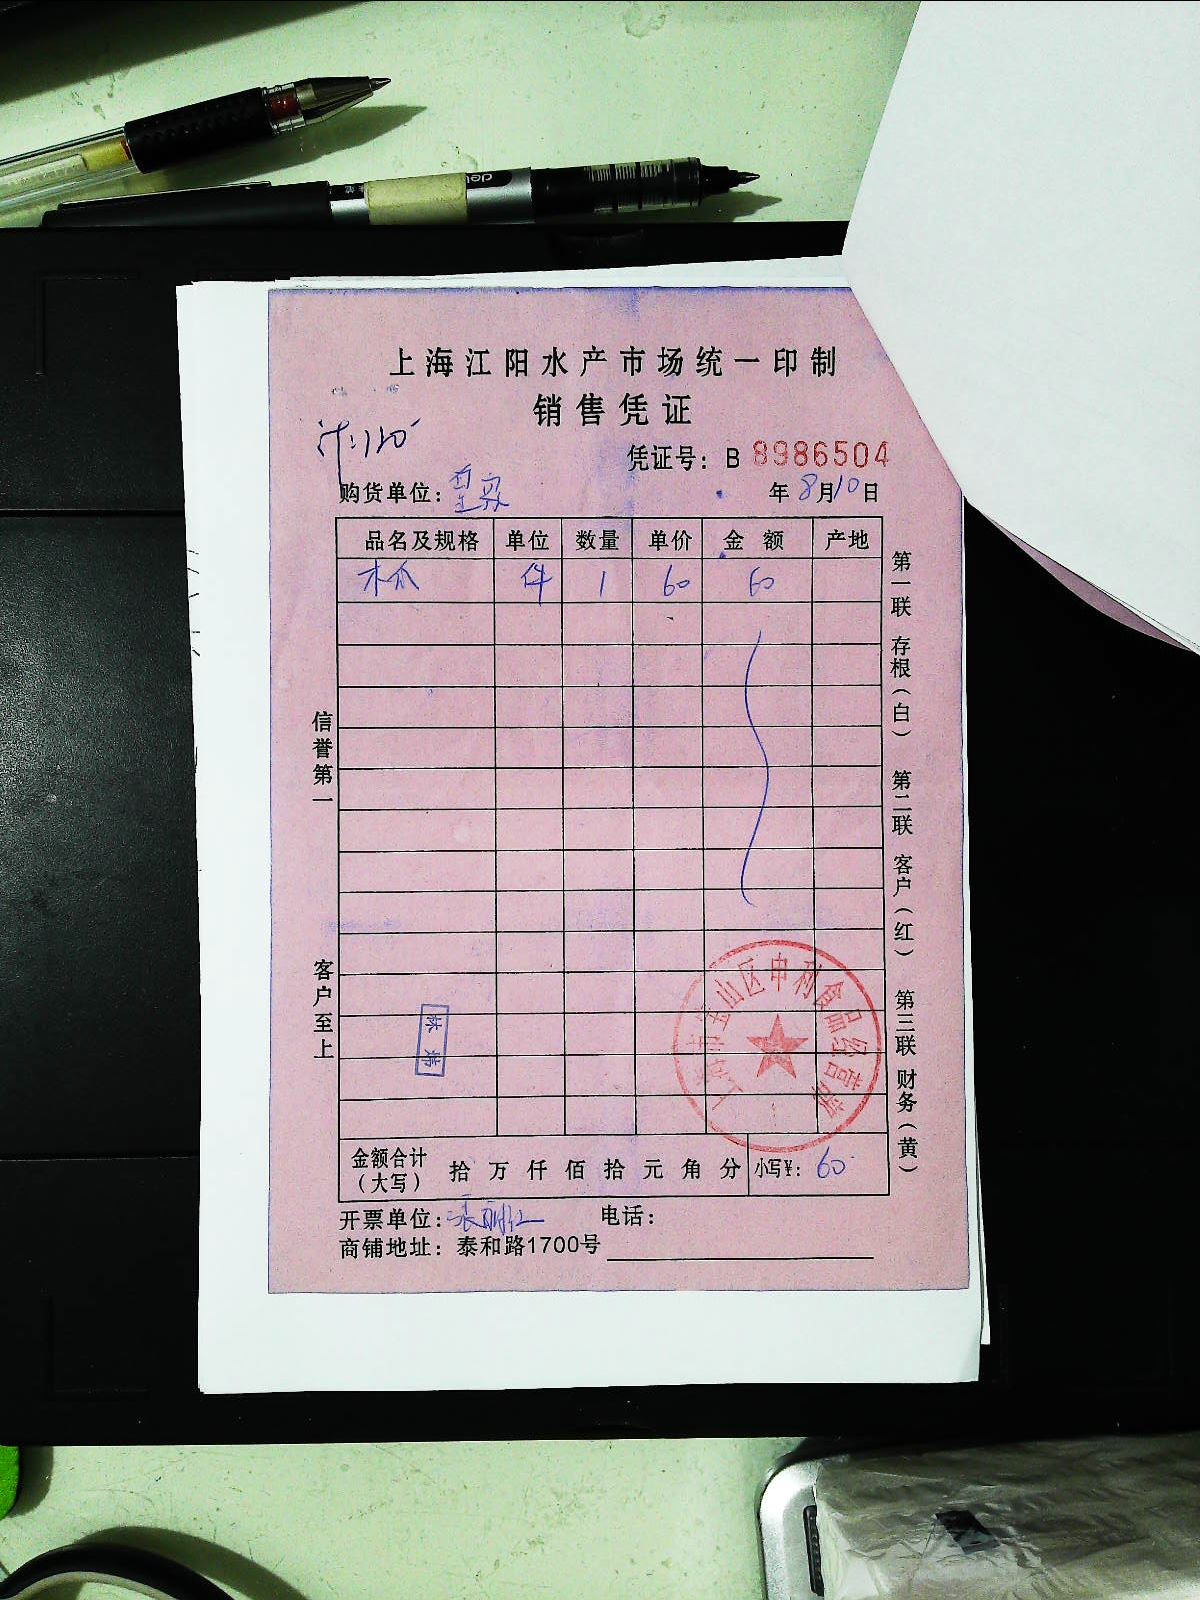 deli
上海江阳水产市场统一印制
销售凭证
计:120
凭证号: B 8986504
购货单位:
年 8月10日
品名及规格 单位 数量 单价 金 额 产地
木瓜 件 1 60 60
信誉第一
客户至上
第一联 存根(白) 第二联 客户(红) 第三联 财务(黄)
上海市宝山区申利食品经营部
金额合计(大写) 拾 万 仟 佰 拾 元 角 分 小写¥: 60
开票单位: 张丽红 电话:
商铺地址: 泰和路1700号